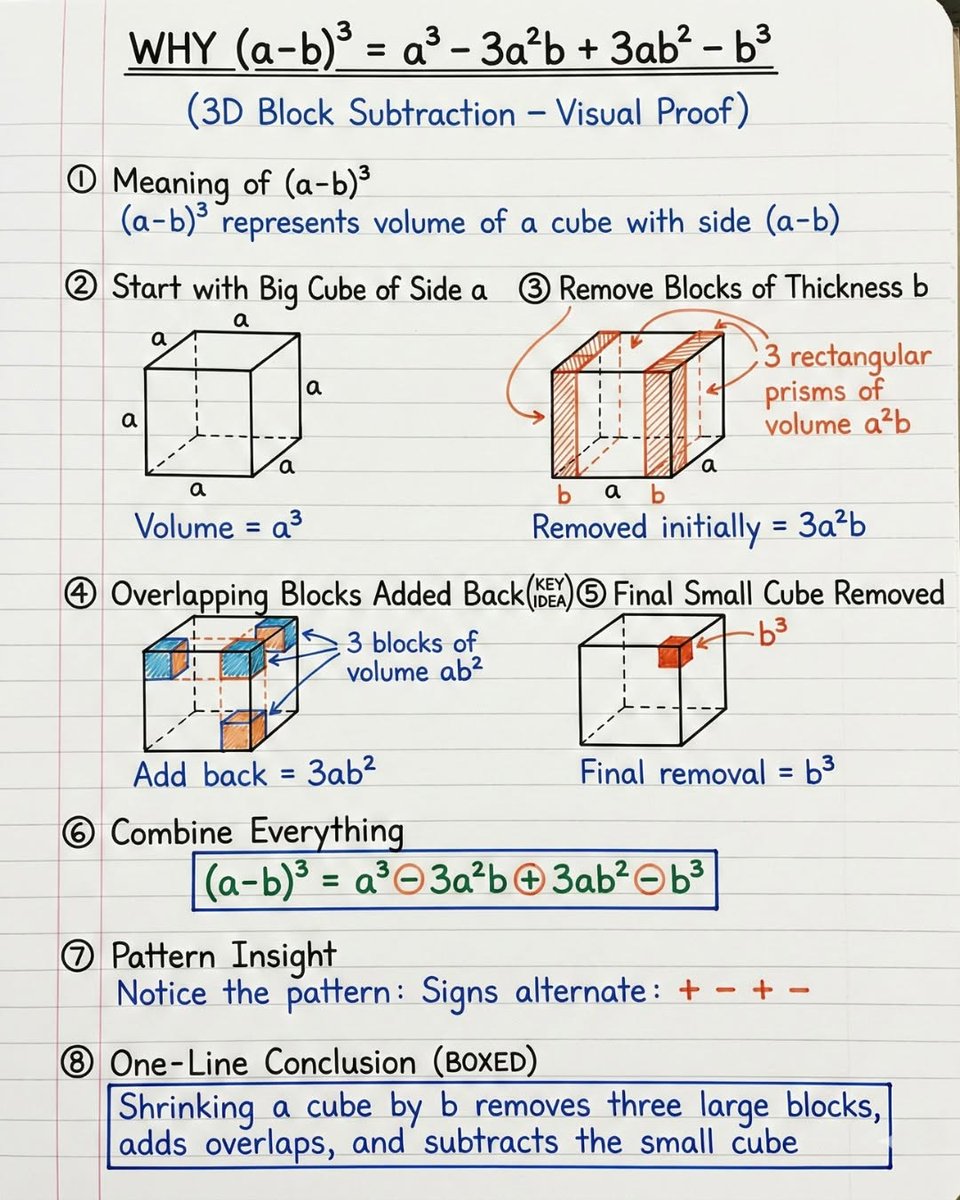 WHY (a-b)³ = a³ - 3a²b + 3ab² - b³
(3D Block Subtraction – Visual Proof)
① Meaning of (a-b)³
(a-b)³ represents volume of a cube with side (a-b)
② Start with Big Cube of Side a
a
a
a
a
a
a
Volume = a³
③ Remove Blocks of Thickness b
3 rectangular
prisms of
volume a²b
a
b a b
Removed initially = 3a²b
④ Overlapping Blocks Added Back (KEY IDEA)
3 blocks of
volume ab²
Add back = 3ab²
⑤ Final Small Cube Removed
b³
Final removal = b³
⑥ Combine Everything
(a-b)³ = a³ ⊖ 3a²b ⊕ 3ab² ⊖ b³
⑦ Pattern Insight
Notice the pattern: Signs alternate: + - + -
⑧ One-Line Conclusion (BOXED)
Shrinking a cube by b removes three large blocks,
adds overlaps, and subtracts the small cube